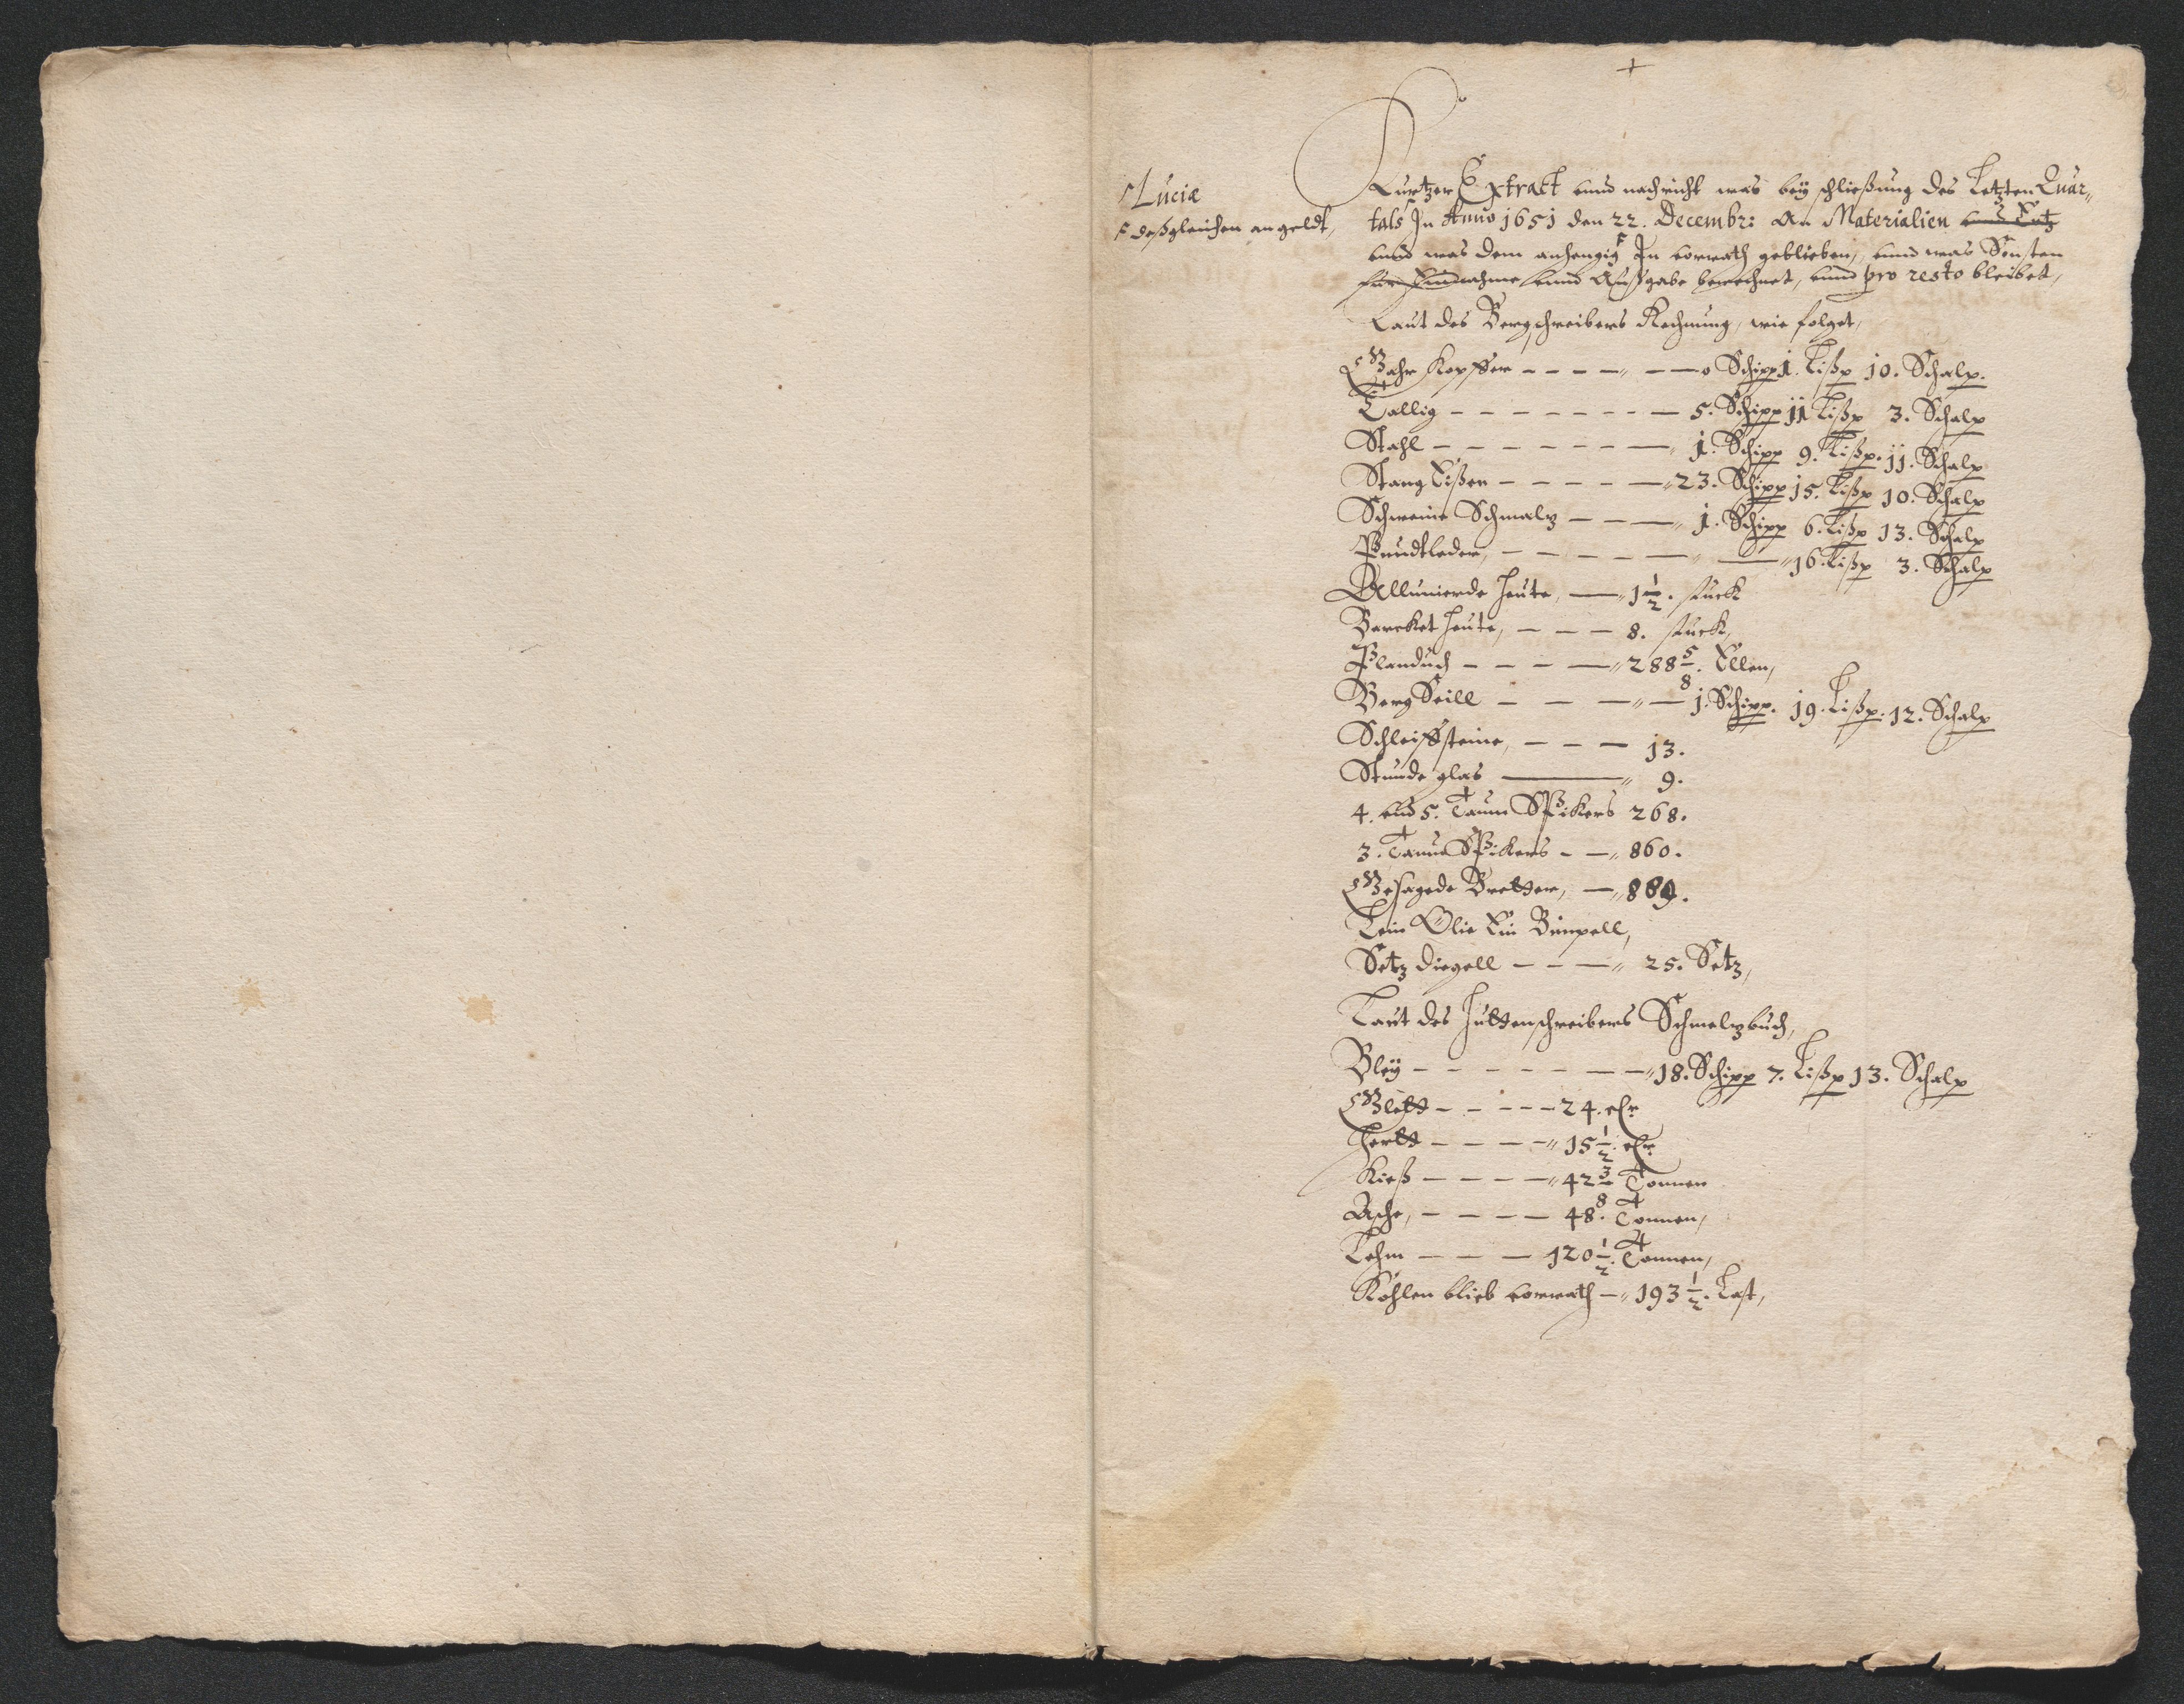 Lucia
deßgleichen an geldt,
Kurtzer Extratt unnd nachricht was beÿ schließung des Letzten Quar„
tals In Anno 1651 den 22. Decembr: An Materialien unnd Ertz
unnd was dem anhengig In vorrath geblieben, unnd was Sonsten
für Einnahme unnd Außgabe berechnet, unnd pro resto bleibet,
Laut des Bergschreibers Rechnung, wie folget,
Gahr Kopffer – – – – „ – 0 Schipp 1. Lißp 10. Schalp.
Tallig – – – – – – – 5. Schipp 11 Lißp 3. Schalp
Stahl – – – – – – – „ 1. Schipp 9. Lißp. 11. Schalp
Stang Eißen – – – – – „ 23. Schipp 15. Lißp 10. Schalp
Schweine Schmaltz – – – „ 1. Schipp 6. Lißp 13. Schalp
Pundtleder, – – – – – „ – „ 16. Lißp 3. Schalp
Allunierde heute, – „ 1 1/2. stuck
Barcket heute, – – – 8. stuck,
Planduch – – – – „ 288 5/8. Ellen,
Berg Seill – – – „ – 1. Schipp. 19. Lißp. 12. Schalp
Schleiffsteine, – – – 13.
Stunde glas – „ 9.
4. und 5. Taum SPikers 268.
3. Taum SPikers – – „ 860.
Gesagede Bretter, – „ 889.
Lein Olie Ein Bimpell,
Setz diegell – – – „ 25. Setz,
Laut des Huttenschreibers Schmeltzbuch,
Bleÿ – – – – – – – „ 18. Schipp 7. Lißp 13. Schalp
Glett – – – – 24. Cr
Hertt – – – – „ 15 1/2. Cr
Kieß – – – – „ 42 3/8 Tonnen
Asche, – – – – 48. Tonnen,
Lehm – – – 120 1/2. Tonnen,
Kohlen blieb vorrath – „ 193 1/2. Last,